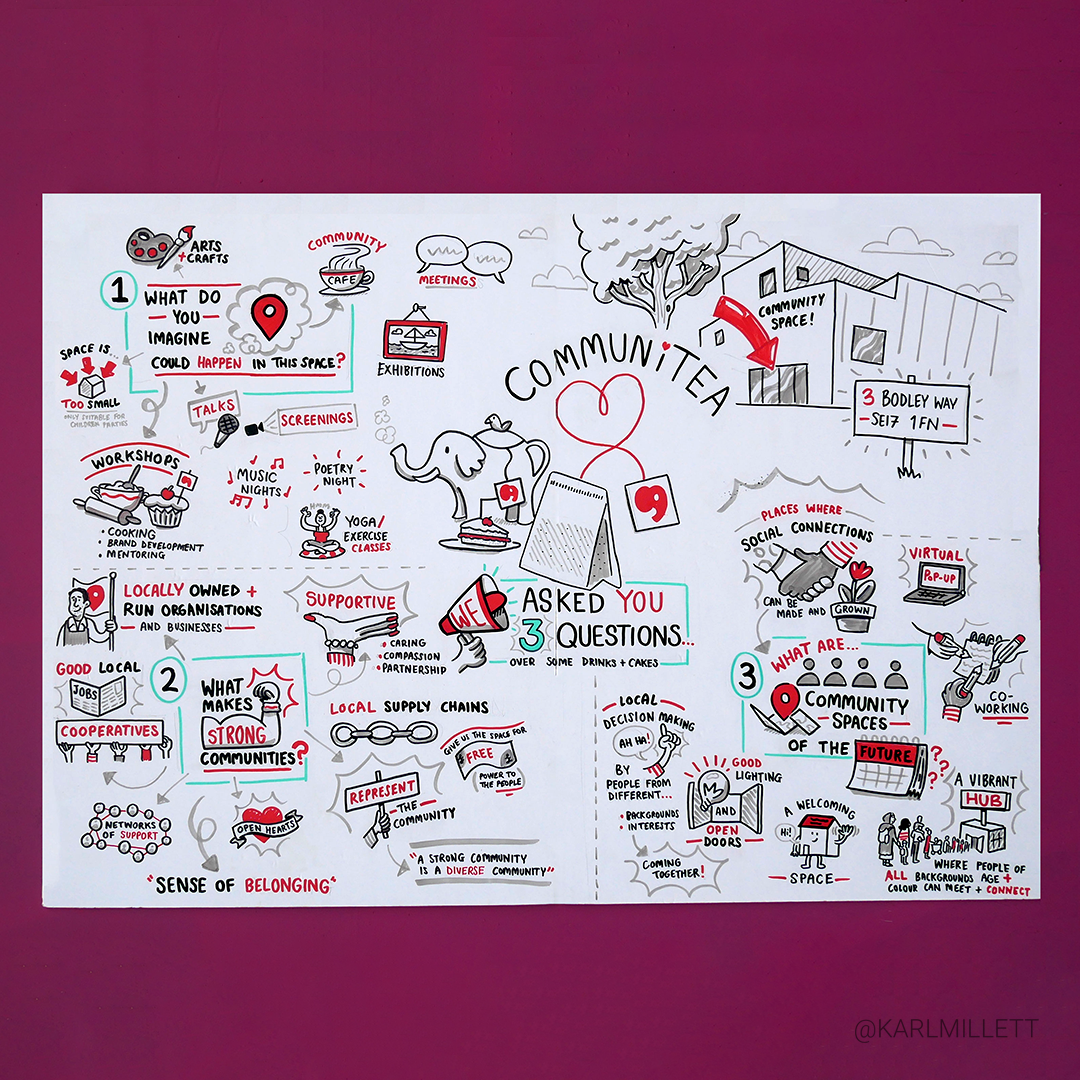 COMMUNiTEA
COMMUNITY
SPACE!
3 BODLEY WAY
SE17 1FN
WE
ASKED YOU
3 QUESTIONS...
OVER SOME DRINKS + CAKES
1
WHAT DO
YOU
IMAGINE
COULD HAPPEN IN THIS SPACE?
ARTS
+CRAFTS
COMMUNITY
CAFE
MEETINGS
EXHIBITIONS
SPACE IS...
TOO SMALL
ONLY SUITABLE FOR
CHILDREN PARTIES
TALKS
SCREENINGS
WORKSHOPS
• COOKING
• BRAND DEVELOPMENT
• MENTORING
MUSIC
NIGHTS
POETRY
NIGHT
HMMM
YOGA/
EXERCISE
CLASSES
2
WHAT
MAKES
STRONG
COMMUNITIES?
LOCALLY OWNED +
RUN ORGANISATIONS
AND BUSINESSES
SUPPORTIVE
• CARING
• COMPASSION
• PARTNERSHIP
GOOD LOCAL
JOBS
COOPERATIVES
NETWORKS
OF SUPPORT
OPEN HEARTS
"SENSE OF BELONGING"
LOCAL SUPPLY CHAINS
GIVE US THE SPACE FOR
FREE
POWER TO
THE PEOPLE
REPRESENT
THE
COMMUNITY
"A STRONG COMMUNITY
IS A DIVERSE COMMUNITY"
3
WHAT ARE...
COMMUNITY
SPACES
OF THE FUTURE
???
PLACES WHERE
SOCIAL CONNECTIONS
CAN BE
MADE AND GROWN
VIRTUAL
POP-UP
CO-
WORKING
LOCAL
DECISION MAKING
AH HA!
BY
PEOPLE FROM
DIFFERENT...
• BACKGROUNDS
• INTERESTS
COMING
TOGETHER!
GOOD
LIGHTING
AND
OPEN
DOORS
A WELCOMING
Hi!
SPACE
A VIBRANT
HUB
WHERE PEOPLE OF
ALL BACKGROUNDS AGE +
COLOUR CAN MEET + CONNECT
@KARLMILLETT